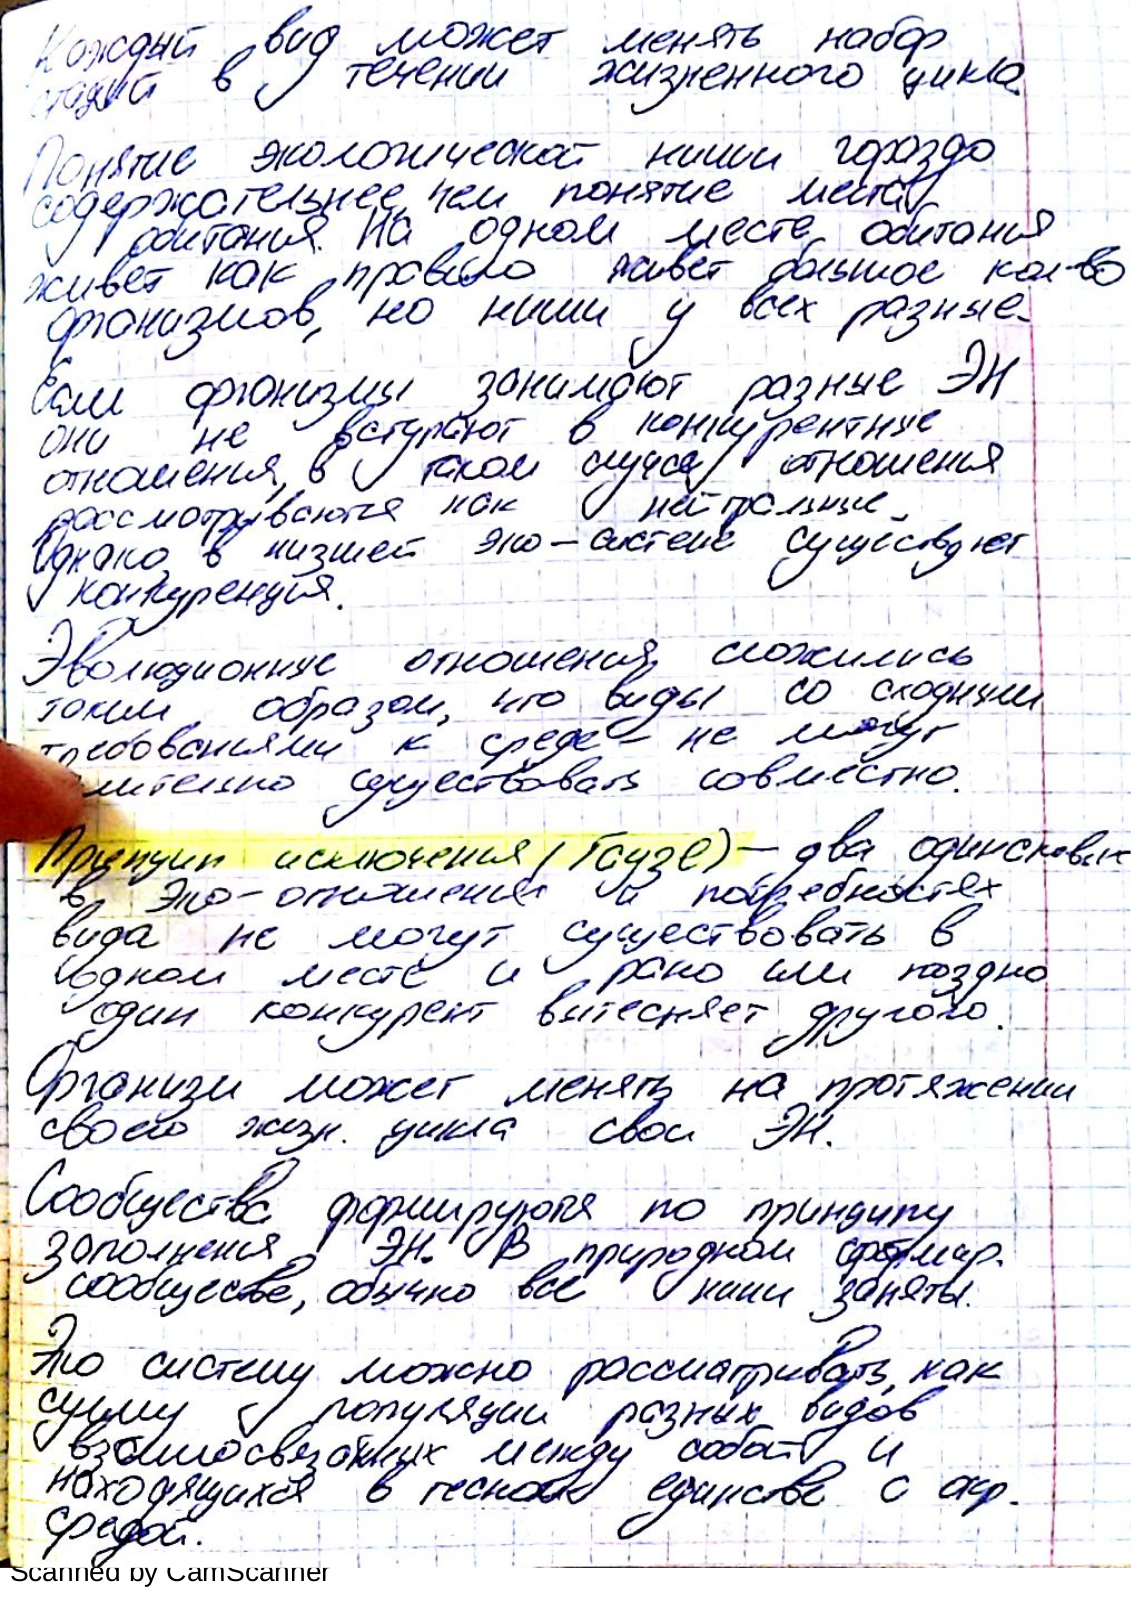 Каждый вид может менять набор
стаций в течении жизненного цикла.
Понятие экологической ниши гораздо
содержательнее, чем понятие места
обитания. На одном месте обитания
живет как правило живет большое кол-во
организмов, но ниши у всех разные.
Если организмы занимают разные ЭН
они не вступают в конкурентные
отношения, в таком случае отношения
рассматриваются как нейтральные.
Однако, в низшей эко-системе существуют
конкуренция.
Эволюционные отношения сложились
таким образом, что виды со сходными
требованиями к среде - не могут
длительно существовать совместно.
Принцип исключения (Гаузе) - два одинаковых
в эко-отношениях и потребностях
вида не могут существовать в
одном месте и рано или поздно
один конкурент вытесняет другого.
Организм может менять на протяжении
своего жизн. цикла свои ЭН.
Сообщества формируются по принципу
заполнения ЭН. В природном сформир.
сообществе, обычно все ниши заняты.
Эко систему можно рассматривать, как
сумму популяции разных видов
взаимосвязанных между собой и
находящихся в тесном единстве с окр.
средой.
Scanned by CamScanner